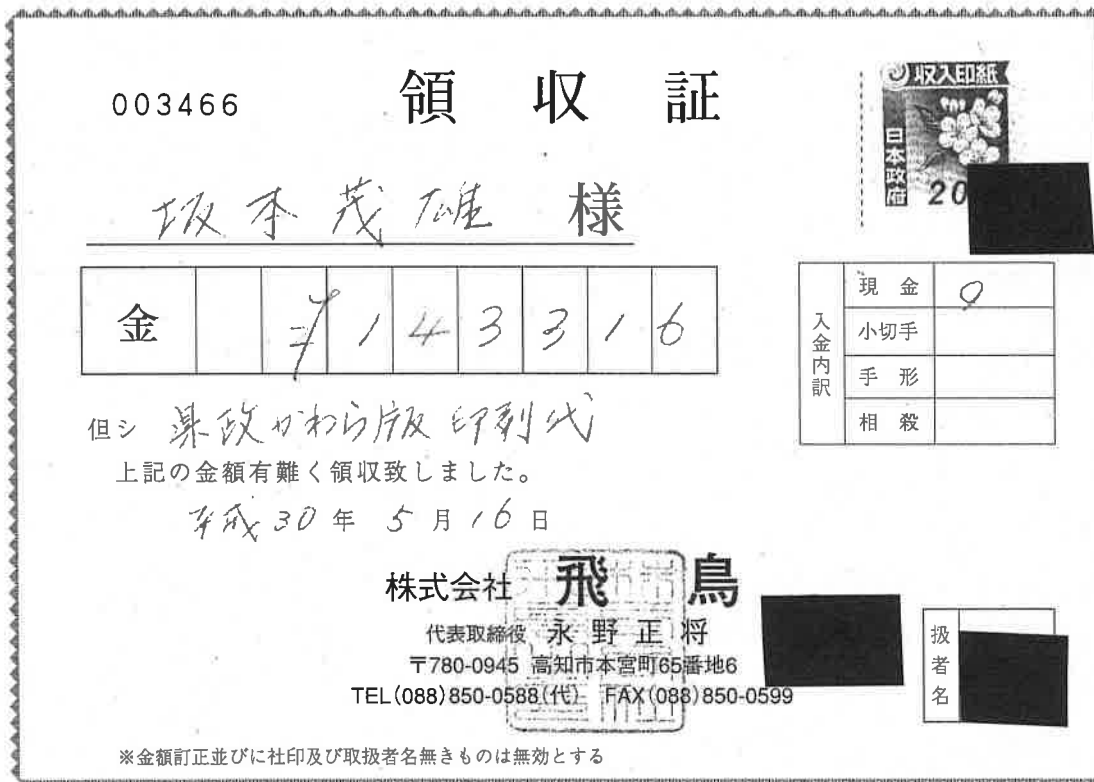 003466 領収証
収入印紙
日本政府
20
坂本茂雄 様
金 ¥143316
入金内訳
現金 0
小切手
手形
相殺
但シ 県政かわら版 印刷代
上記の金額有難く領収致しました。
平成30年 5月16日
株式会社 飛鳥
代表取締役 永野正将
〒780-0945 高知市本宮町65番地6
TEL(088)850-0588(代) FAX(088)850-0599
扱者名
※金額訂正並びに社印及び取扱者名無きものは無効とする